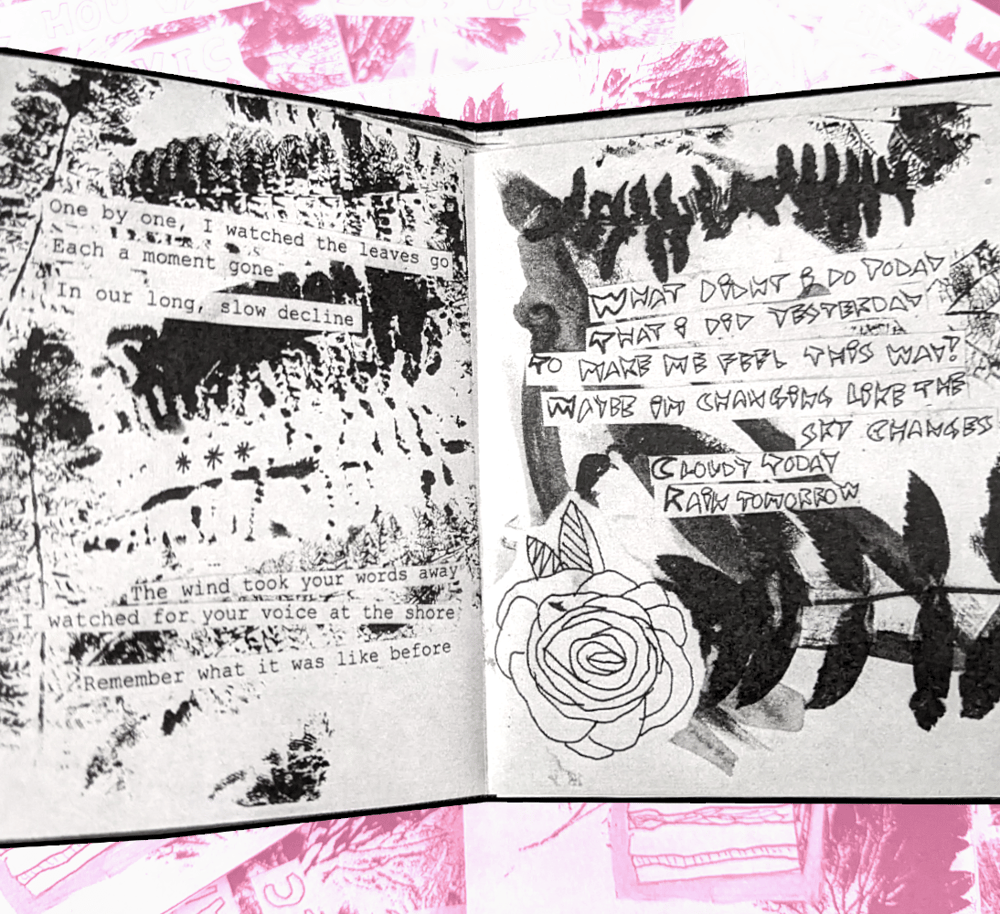 One by one, I watched the leaves go
Each a moment gone
In our long, slow decline
***
The wind took your words away
I watched for your voice at the shore
Remember what it was like before
WHAT DIDNT I DO TODAY
THAT I DID YESTERDAY
TO MAKE ME FEEL THIS WAY?
MAYBE IM CHANGING LIKE THE
SKY CHANGES
CLOUDY TODAY
RAIN TOMORROW